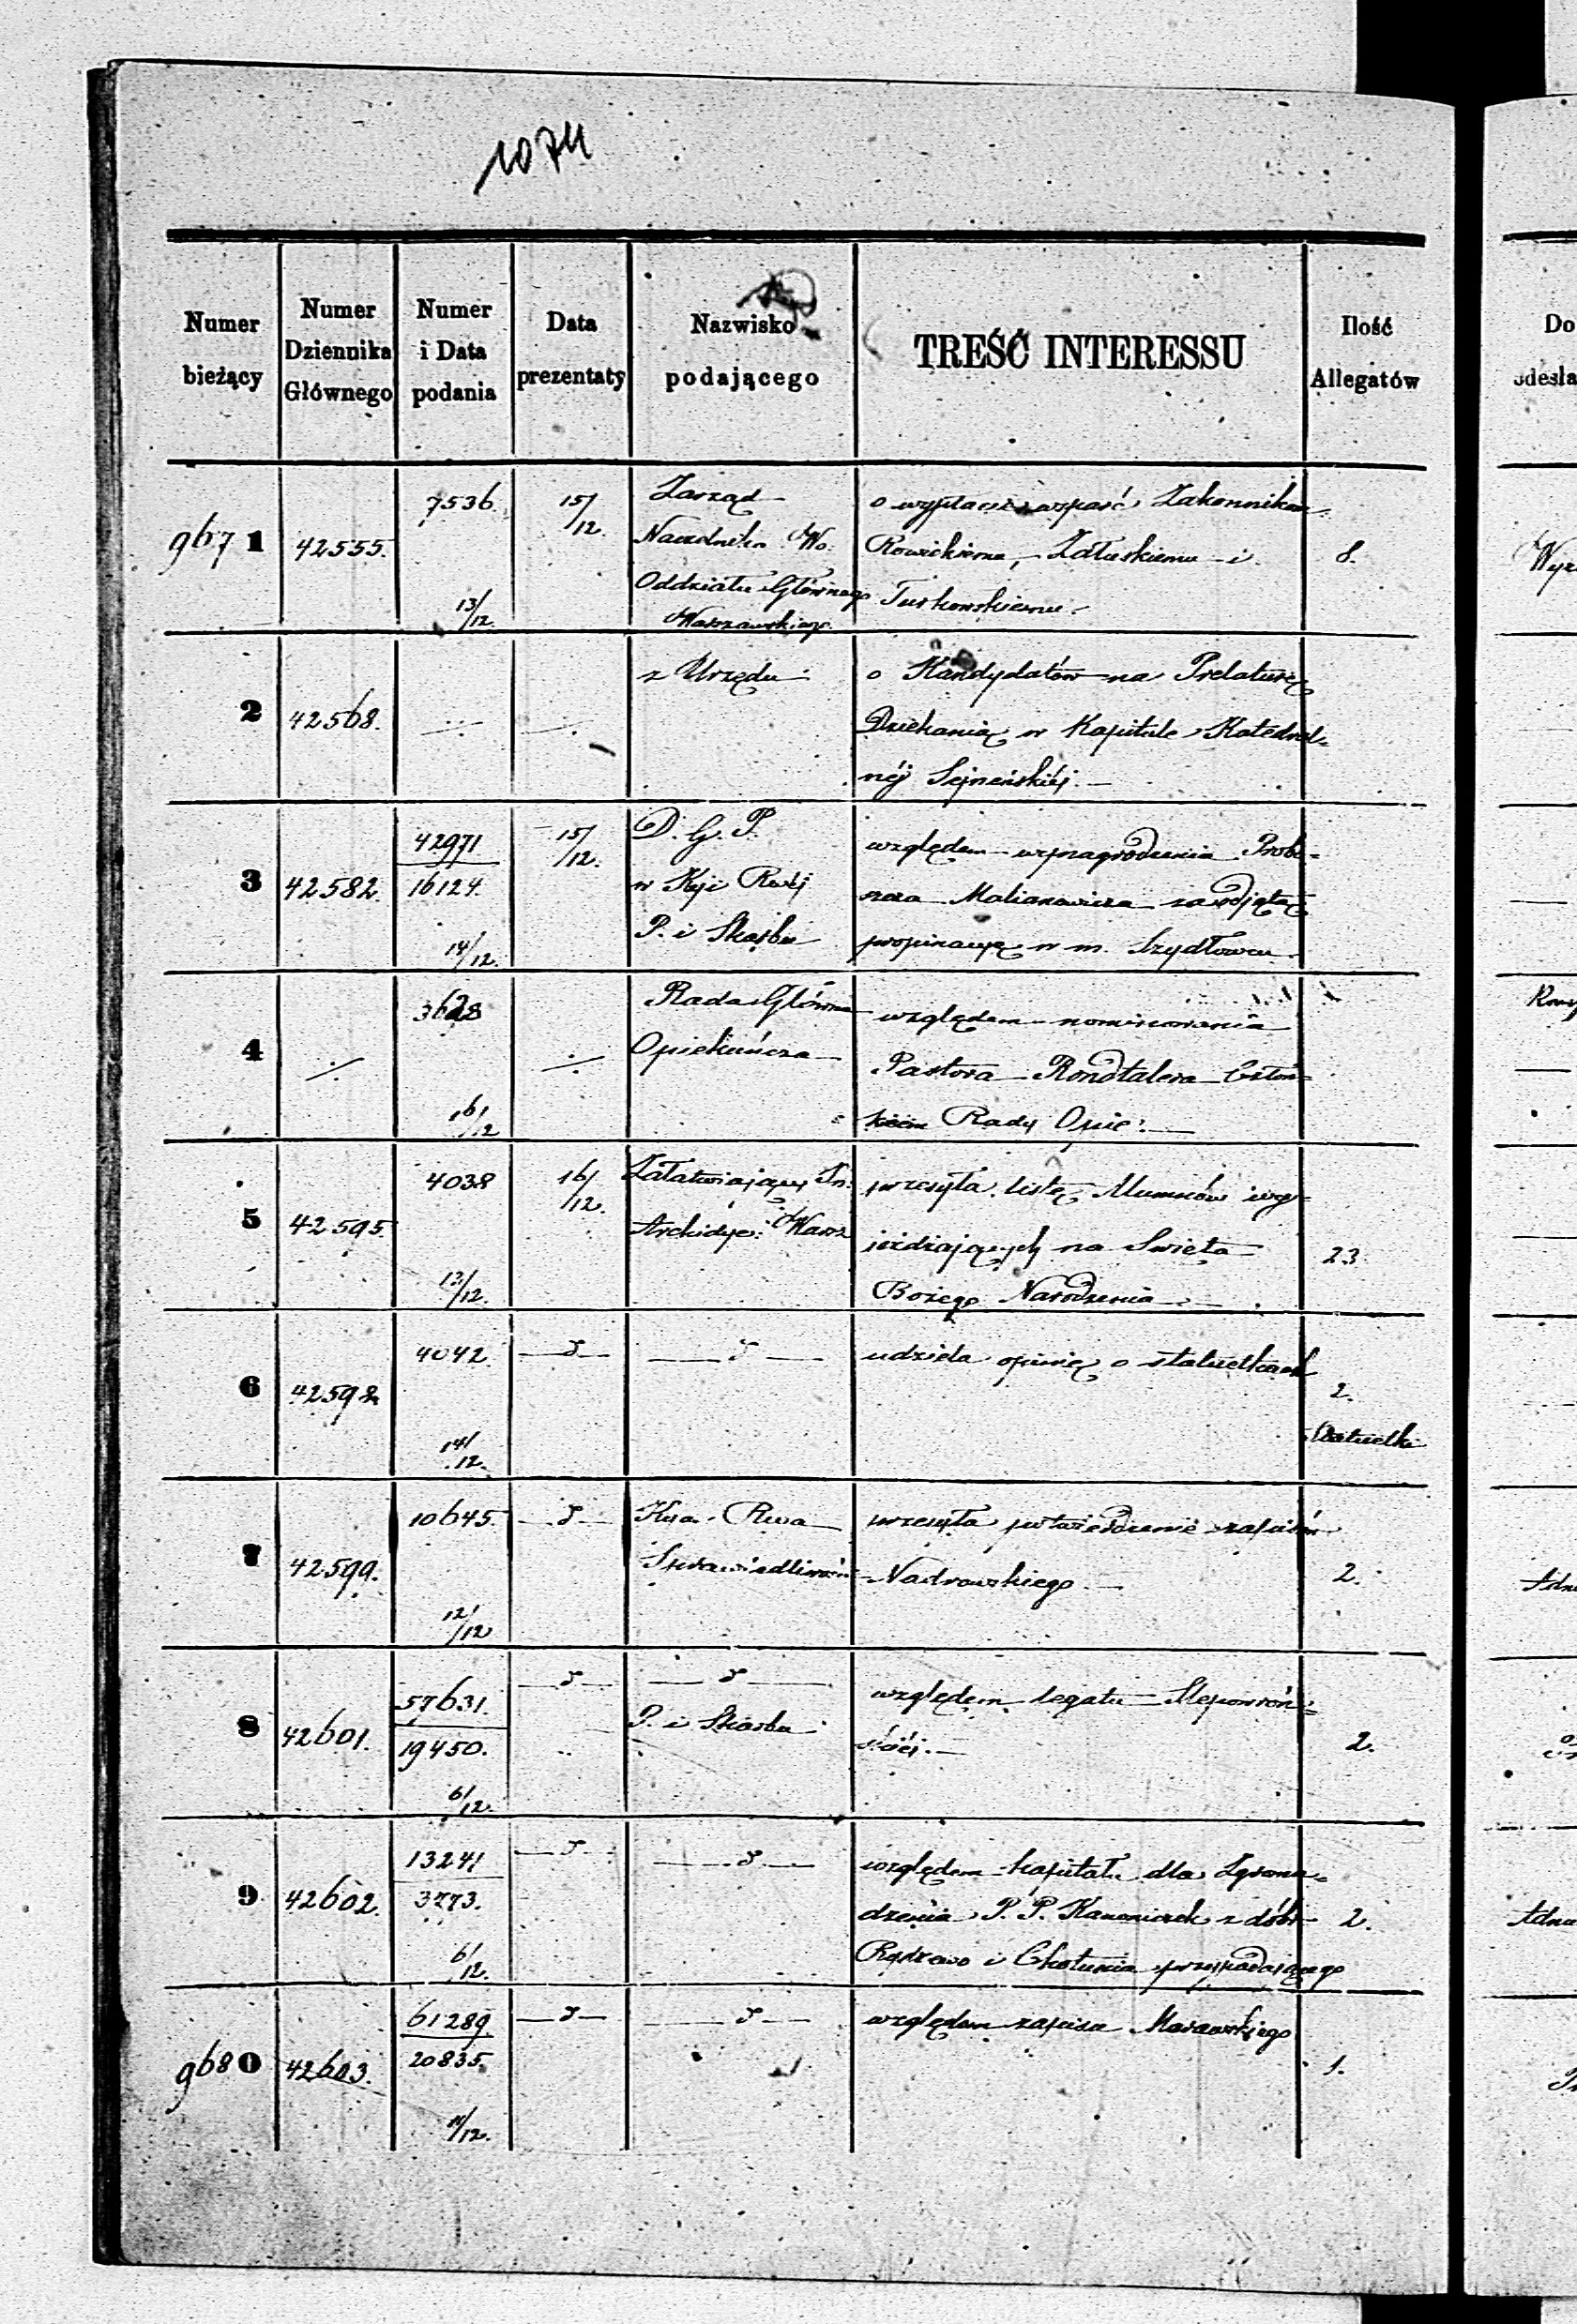 1074
Numer bieżący
Numer Dziennika Głównego
Numer i Data podania
Data prezentaty
Nazwisko podającego
TREŚĆ INTERESSU
Ilość Allegatów
Do
odesła
9671 42555. 7536. 13/12. 15/12.
Zarząd
Naczelnika Wo.
Oddziału Głównego
Warszawskiego.
o wypłacie wsparć Zakonnikom
Rowickiemu, Załuskiemu i
Turkowskiemu.
8.
2 42568.
z Urzędu
o Kandydatów na Prelaturę
Dziekanią w Kapitule Katedral=
néj Sejneńskiéj.
3 42582. 42971 16124. 14/12. 15/12.
D. G. P.
w Kyi Rwéj
P. i Skarbu
względem wynagrodzenia Probo=
szcza Malianowicza za odjętą
propinację w m. Szydłowcu
4 3628 16/12
Rada Główna
Opiekuńcza
względem nominowania
Pastora Rondtalera Człon=
kiem Rady Opie:
5 42595. 4038 13/12. 16/12.
Załatwiający In.
Archidyec: Warsz
przesyła listę Alumnów wy=
jeżdżających na Święta
Bożego Narodzenia
23
6 42598 4042. 14/12.
udziela opinię o statuetkach
2.
Statuetki
7 42599. 10645. 12/12
Kya Rwa
Sprawiedliwości
przesyła potwierdzenie zapisów
Nadrowskiego.
2.
8 42601. 57631. 19450. 6/12.
P. i Skarbu
względem legatu Ślepowroń=
skiéj.
2.
9 42602. 13241 3773. 6/12.
względem kapitału dla Zgroma=
dzenia P. P. Kanoniczek z dóbr
Rydzewo i Chotunia przypadającego
2.
9680 42603. 61289 20835. 11/12.
względem zapisu Morawskiego
1.